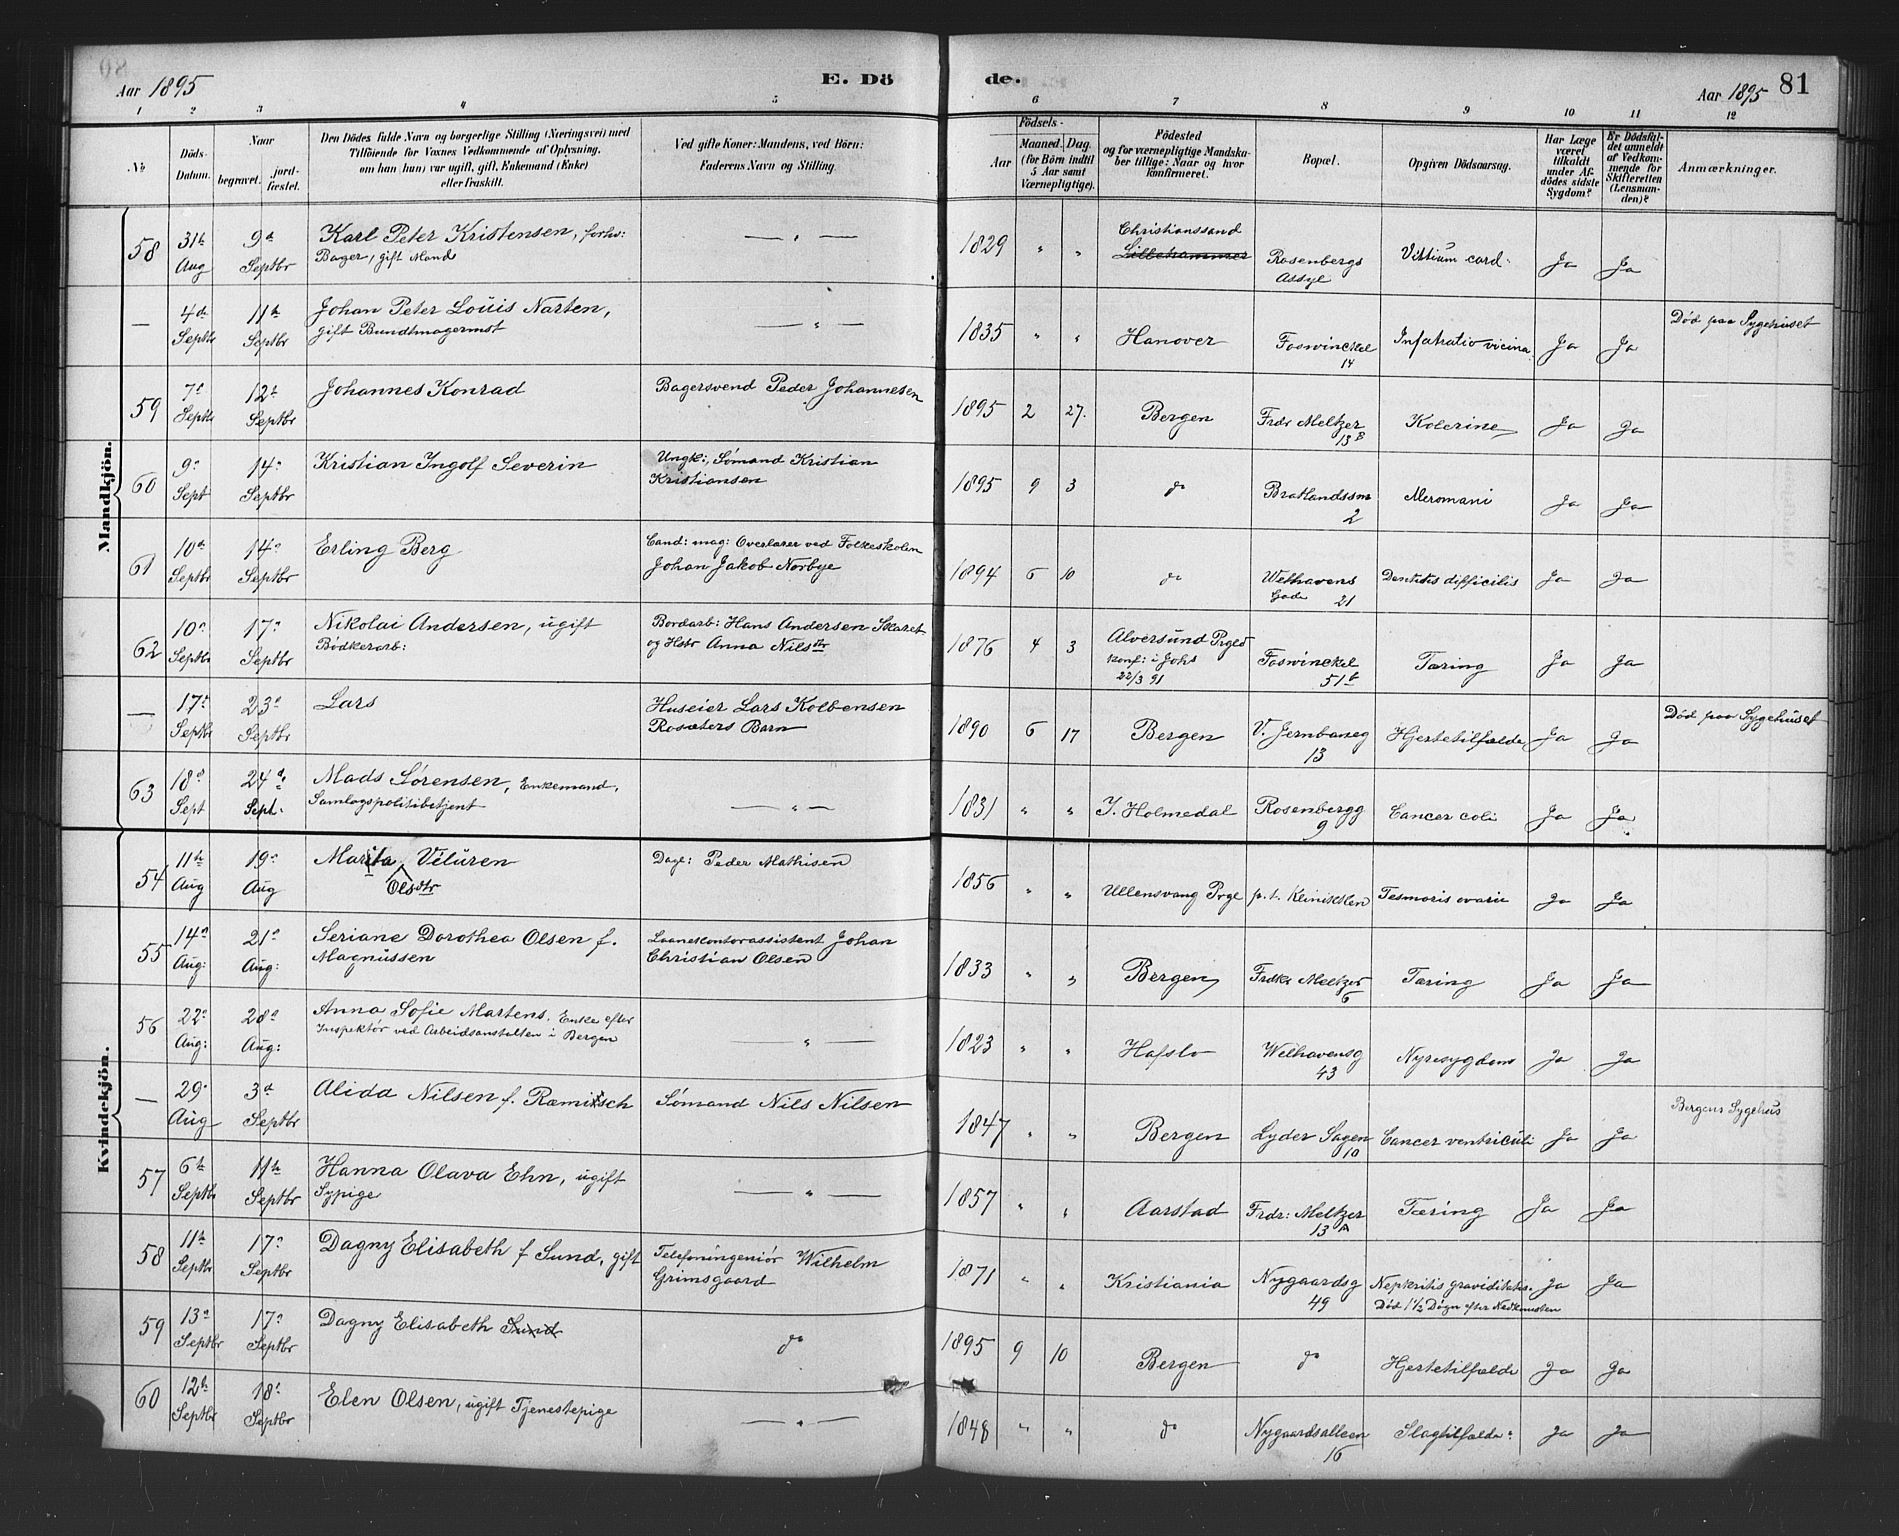 Aar 1895
E. Dö
de.
Aar 1895
81
1 2 3 4 5 6 7 8 9 10 11 12
No
Döds-Datum.
Naar
begravet.
jord-fæstet.
Den Dödes fulde Navn og borgerlige Stilling (Næringsvei) med
Tilföiende for Voxnes Vedkommende af Oplysning,
om han (hun) var ugift, gift, Enkemand (Enke)
eller fraskilt.
Ved gifte Koner: Mandens, ved Börn:
Faderens Navn og Stilling.
Födsels-
Aar
Maaned. Dag.
(for Börn indtil
5 Aar samt
Værnepligtige).
Födested
og for værnepligtige Mandska-
ber tillige: Naar og hvor
konfirmeret.
Bopæl.
Opgiven Dödsaarsag.
Har Læge
været
tilkaldt
under Af-
dödes sidste
Sygdom?
Er Dödsfal-
det anmeldt
af Vedkom-
mende for
Skifteretten
(Lensman-
den)?
Anmærkninger.
Mandkjön.
58 31te Aug 9de Septbr Karl Peter Kristensen, forhv: Bager, gift Mand — " — 1829 " " Christianssand Lillehammer Rosenbergs Assyl Vittium cord. Ja Ja
— 4de Septbr 11te Septbr Johan Peter Louis Narten, gift Bundtmagermst — " — 1835 " " Hanover Foswinckel 14 Infatratio vicina Ja Ja Död paa Sygehuset
59 7de Septbr 12te Septbr Johannes Konrad Bagersvend Peder Johannesen 1895 2 27. Bergen Frdr Meltzer 13B Kolerine Ja Ja
60 9de Sept 14de Septbr Kristian Ingolf Severin Ungk:, Sømand Kristian Kristiansen 1895 9 3 do Bratlandssm 2 Meromani Ja Ja
61 10de Septbr 14de Septbr Erling Berg Cand: mag: Overlærer ved Folkeskolen Johan Jakob Norbye 1894 6 10 do Welhavens Gade 21 Dentitis difficilis Ja Ja
62 10de Septbr 17de Septbr Nikolai Andersen, ugift Bødkerarb: Bordarb: Hans Andersen Skaret og Hstr Anna Nilsdtr 1876 4 3 Alversund Prgld konf: i Johs 22/3 91 Foswinckel 51b Tæring Ja Ja
— 17de Septbr 23de Septbr Lars Huseier Lars Kolbensen Rosæters Barn 1890 6 17 Bergen V. Jernbaneg 13 Hjertetilfælde Ja Ja Död paa Sygehuset
63 18de Sept 24de Sept: Mads Sørensen, Enkemand, Samlagspolitibetjent — " — 1831 " " Y. Holmedal Rosenbergg 9 Cancer coli Ja Ja
Kvindekjön.
54 11te Aug 19de Aug Marita Olsdtr Vilüren Dagl: Peder Mathisen 1856 " " Ullensvang Prgl p.t. Kliniken Tesmoris ovarii Ja Ja
55 14de Aug: 21de Aug: Seriane Dorothea Olsen f. Magnüssen Laanekontorassistent Johan Christian Olsen 1833 " " Bergen Frdkr Meltzer 6 Tæring Ja Ja
56 22de Aug: 28de Aug: Anna Sofie Martens, Enke efter Inspektør ved Arbeidsanstalten i Bergen — " — 1823 " " Hafslo Welhavensg 43 Nyresygdom Ja Ja
— 29de Aug 3de Septbr Alida Nilsen f. Ræmitsch Sømand Nils Nilsen 1847 " " Bergen Lyder Sagen 10 Cancer ventriculi Ja Ja Bergens Sygehus
57 6te Septbr 11te Septbr Hanna Olava Ehn, ugift Sypige — " — 1857 " " Aarstad Frdr: Meltzer 13A Tæring Ja Ja
58 11te Septbr 17de Septbr Dagny Elisabeth f Sund, gift Telefoningeniør Wilhelm Grimsgaard 1871 " " Kristiania Nygaardsg 49 Nepkritis graviditatis. Död 1½ Døgn efter Nedkomsten Ja Ja
59 13de Septbr 17de Septbr Dagny Elisabeth Sund do 1895 9 10 Bergen do Hjertetilfælde Ja Ja
60 12te Septbr 18de Septbr Elen Olsen, ugift Tjenestepige — " — 1848 " " do Nygaardsalleen 16 Slagtilfælde Ja Ja